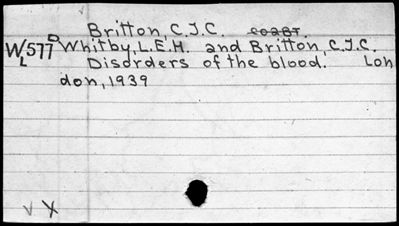 Britton, C.J.C. coabt.
W/577 D Whitby, L.E.H. and Britton, C.J.C.
L Disdrders of the blood. Lon
don, 1939
V X